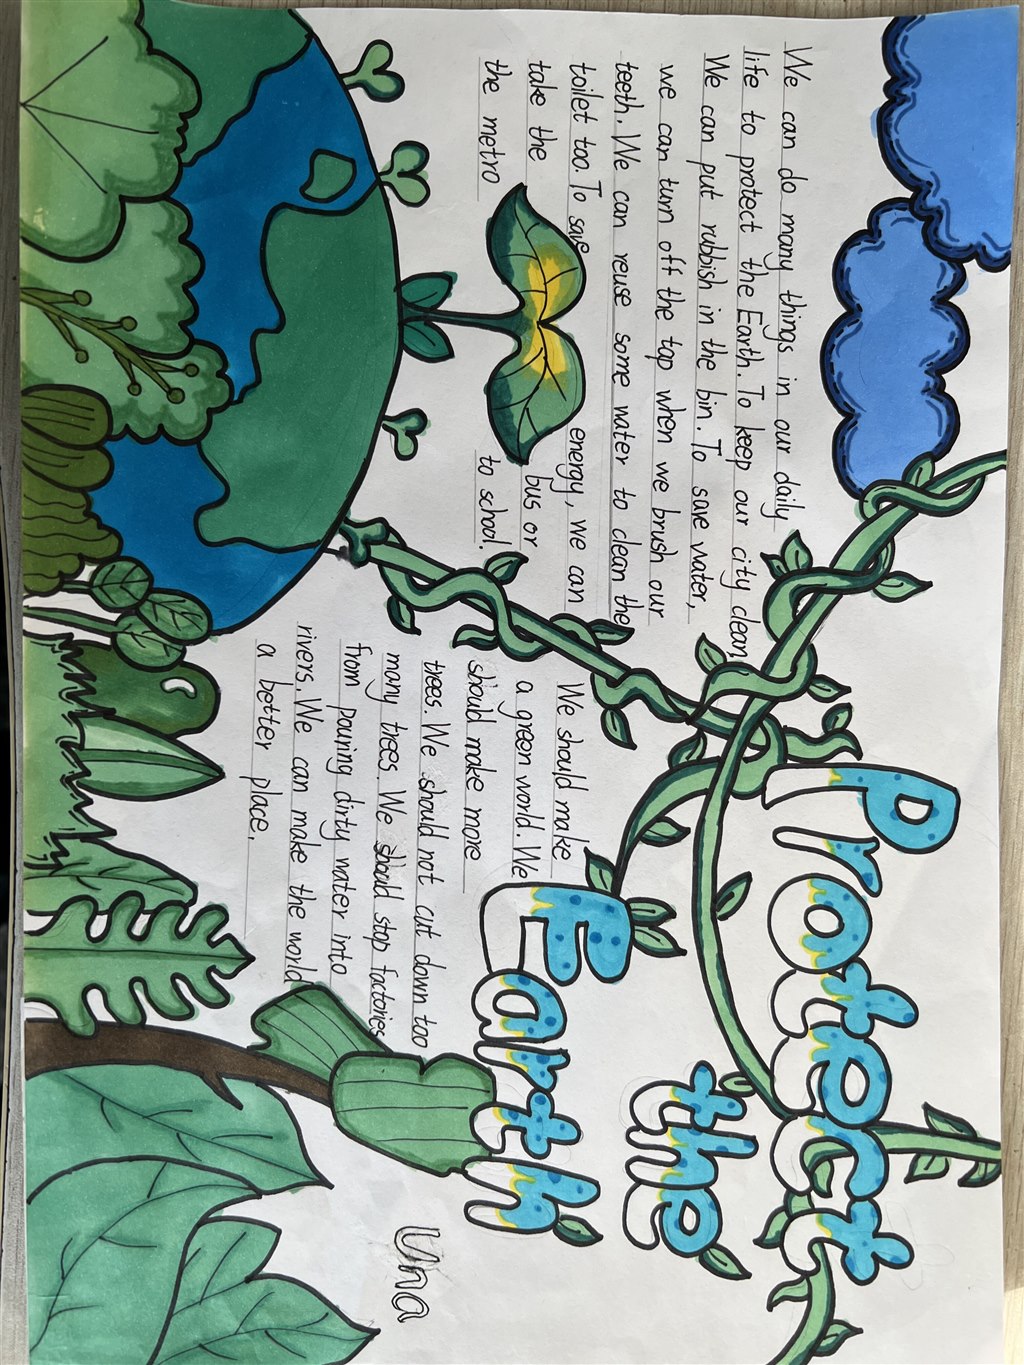 We can do many things in our daily
life to protect the Earth. To keep our city clean
We can put rubbish in the bin. To save water,
we can turn off the tap when we brush our
teeth. We can reuse some water to clean the
toilet too. To save energy, we can
take the bus or
the metro to school.
Protect
the
Earth
We should make
a green world. We
should make more
trees. We should not cut down too
many trees. We should stop factories
from pouring dirty water into
rivers. We can make the world
a better place.
Una